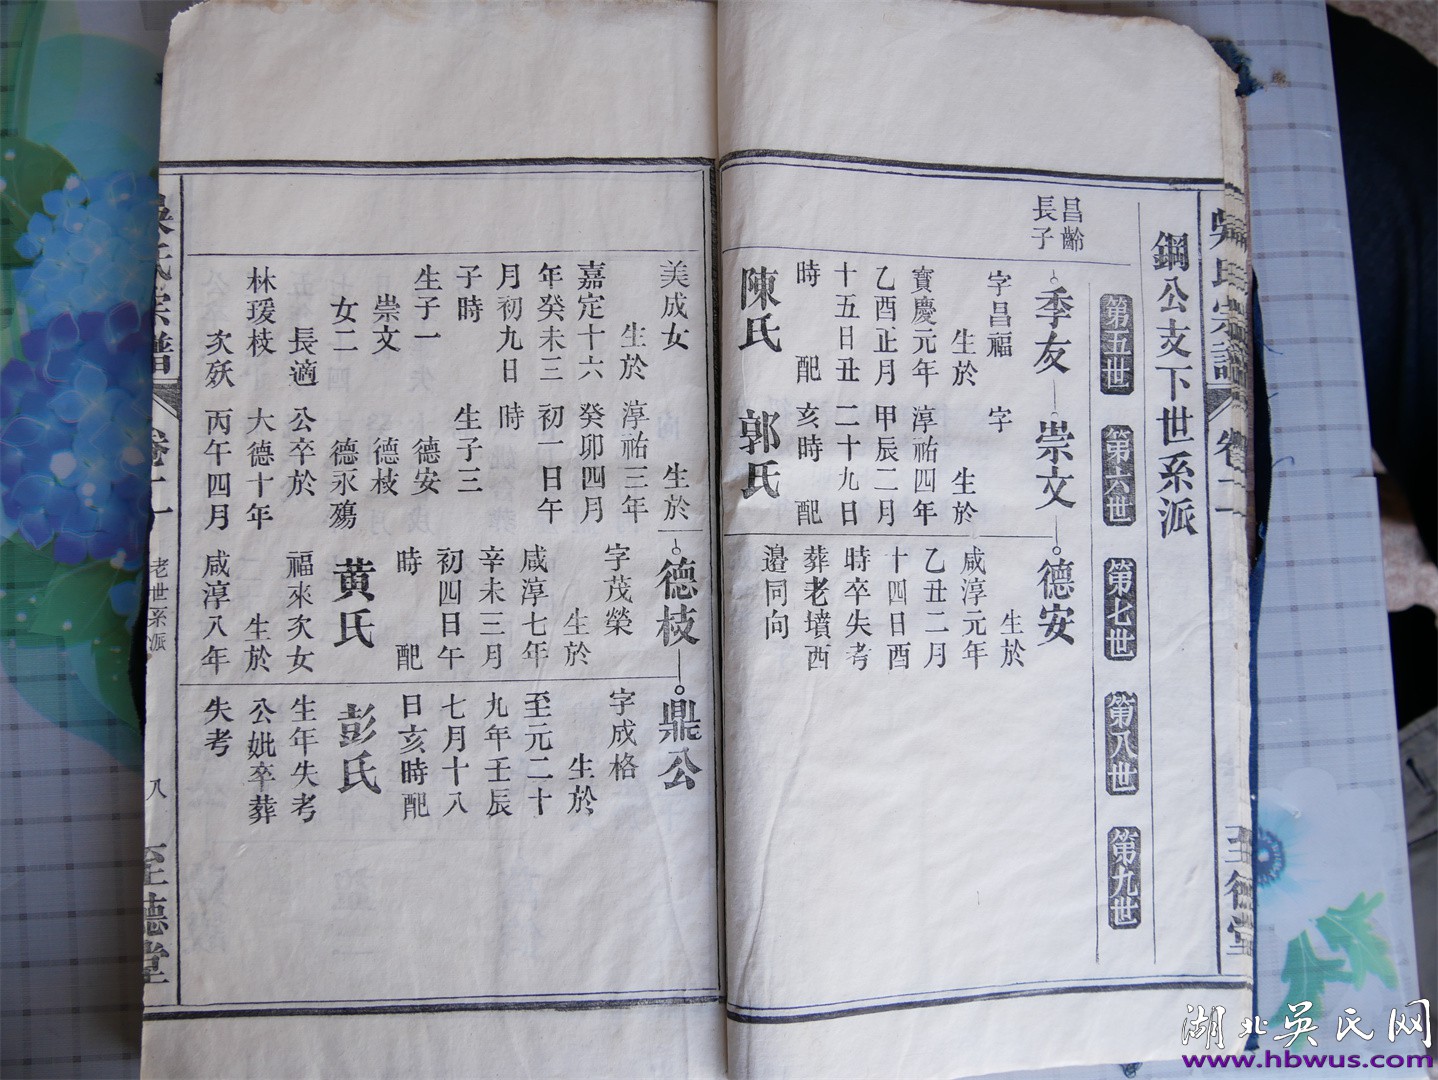 鋼公支下世系派
第五世
第六世
第七世
第八世
第九世
昌齡
長子
季友
字昌福
生於
寶慶元年
乙酉正月
十五日丑
時　配
陳氏
美成女
生於
嘉定十六
年癸未三
月初九日
子時
生子一
崇文
女二
長適
林瑗枝
次殀
崇文
字
生於
淳祐四年
甲辰二月
二十九日
亥時　配
郭氏
生於
淳祐三年
癸卯四月
初一日午
時
生子三
德安
德枝
德永殤
公卒於
大德十年
丙午四月
德安
生於
咸淳元年
乙丑二月
十四日酉
時卒失考
葬老墳西
邉同向
德枝
字茂榮
生於
咸淳七年
辛未三月
初四日午
時　配
黃氏
福來次女
生於
咸淳八年
鼎公
字成格
生於
至元二十
九年壬辰
七月十八
日亥時配
彭氏
生年失考
公妣卒葬
失考
吳氏宗譜
卷二十
老世系派
八
至德堂
湖北吳氏网
www.hbwus.com